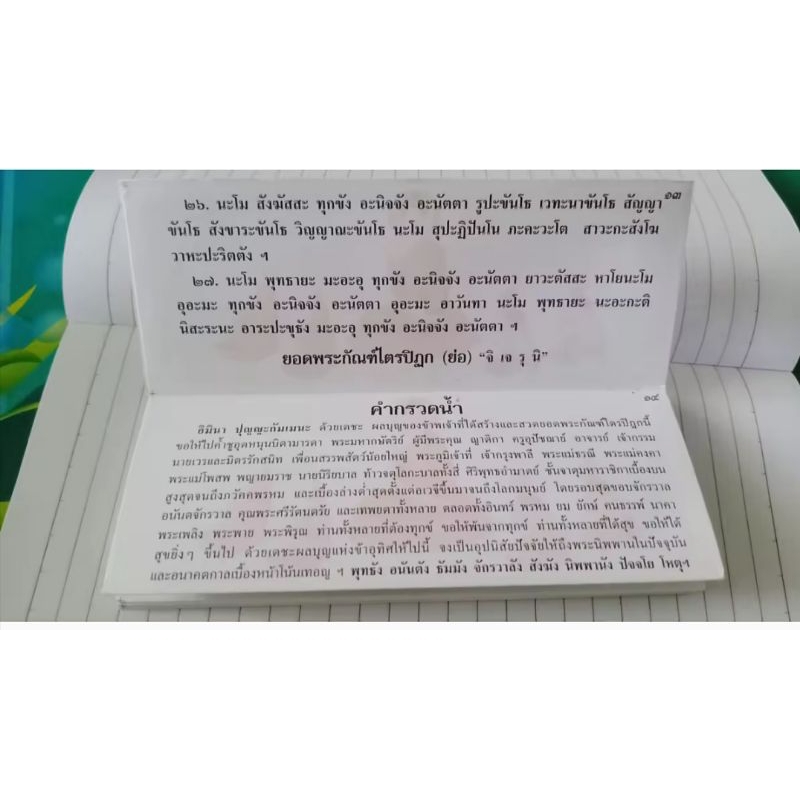 ๑๓
๒๖. นะโม สังฆัสสะ ทุกขัง อะนิจจัง อะนัตตา รูปะขันโธ เวทะนาขันโธ สัญญา
ขันโธ สังขาระขันโธ วิญญาณะขันโธ นะโม สุปะฏิปันโน ภะคะวะโต สาวะกะสังโฆ
วาหะปะริตตัง ฯ
๒๗. นะโม พุทธายะ มะอะอุ ทุกขัง อะนิจจัง อะนัตตา ยาวะตัสสะ หาโยนะโม
อุอะมะ ทุกขัง อะนิจจัง อะนัตตา อุอะมะ อาวันทา นะโม พุทธายะ นะอะกะติ
นิสะระนะ อาระปะขุธัง มะอะอุ ทุกขัง อะนิจจัง อะนัตตา ฯ
ยอดพระกัณฑ์ไตรปิฎก (ย่อ) “จิ เจ รุ นิ”
๑๔
คำกรวดน้ำ
อิมินา ปุญญะกัมเมนะ ด้วยเดชะ ผลบุญของข้าพเจ้าที่ได้สร้างและสวดยอดพระกัณฑ์ไตรปิฎกนี้
ขอให้ไปค้ำชูอุดหนุนบิดามารดา พระมหากษัตริย์ ผู้มีพระคุณ ญาติกา ครูอุปัชฌาย์ อาจารย์ เจ้ากรรม
นายเวรและมิตรรักสนิท เพื่อนสรรพสัตว์น้อยใหญ่ พระภูมิเจ้าที่ เจ้ากรุงพาลี พระแม่ธรณี พระแม่คงคา
พระแม่โพสพ พญายมราช นายนิริยบาล ท้าวจตุโลกะบาลทั้งสี่ ศิริพุทธอำมาตย์ ชั้นจาตุมหาราชิกาเบื้องบน
สูงสุดจนถึงภวัคคพรหม และเบื้องล่างต่ำสุดตั้งแต่อเวจีขึ้นมาจนถึงโลกมนุษย์ โดยรอบสุดขอบจักรวาล
อนันตจักรวาล คุณพระศรีรัตนตรัย และเทพยดาทั้งหลาย ตลอดทั้งอินทร์ พรหม ยม ยักษ์ คนธรรพ์ นาคา
พระเพลิง พระพาย พระพิรุณ ท่านทั้งหลายที่ต้องทุกข์ ขอให้พ้นจากทุกข์ ท่านทั้งหลายที่ได้สุข ขอให้ได้
สุขยิ่งๆ ขึ้นไป ด้วยเดชะผลบุญแห่งข้าอุทิศให้ไปนี้ จงเป็นอุปนิสัยปัจจัยให้ถึงพระนิพพานในปัจจุบัน
และอนาคตกาลเบื้องหน้าโน้นเทอญ ฯ พุทธัง อนันตัง ธัมมัง จักรวาลัง สังฆัง นิพพานัง ปัจจโย โหตุฯ